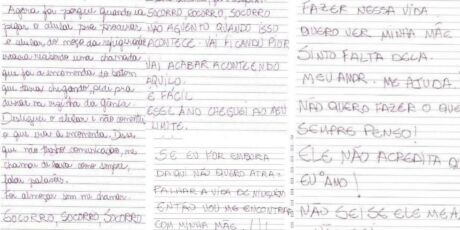 Agora foi porque quando ia
pegar o celular pra procurar
o celular do moço da refrigeração
entrou uma chamada
que foi a encomenda do batom
que tinha chegando, pedi pra
deixar na vizinha da
Desliguei o celular e não comentei
o que era a encomenda. Disse
que não tenho comunicado, me
chamou de como sempre,
falou palavras.
Foi almoçar sem me chamar.
SOCORRO, SOCORRO, SOCORRO
SOCORRO, SOCORRO, SOCORRO
NÃO AGUENTO QUANDO ISSO
ACONTECE. VAI FICANDO PIOR
VAI ACABAR ACONTECENDO
AQUILO.
É FÁCIL
ESSE ANO CHEGUEI AO MEU
LIMITE.
SE EU FOR EMBORA
DAQUI NÃO QUERO ATRA-
PALHAR A VIDA DE NINGUÉM
ENTÃO VOU ME ENCONTRAR
COM MINHA MÃE. !!!
FAZER NESSA VIDA
QUERO VER MINHA MÃE
SINTO FALTA DELA.
MEU AMOR. ME AJUDA.
NÃO QUERO FAZER O QUE
SEMPRE PENSO!
ELE NÃO ACREDITA Q
EU O AMO!
NÃO SEI SE ELE ME A